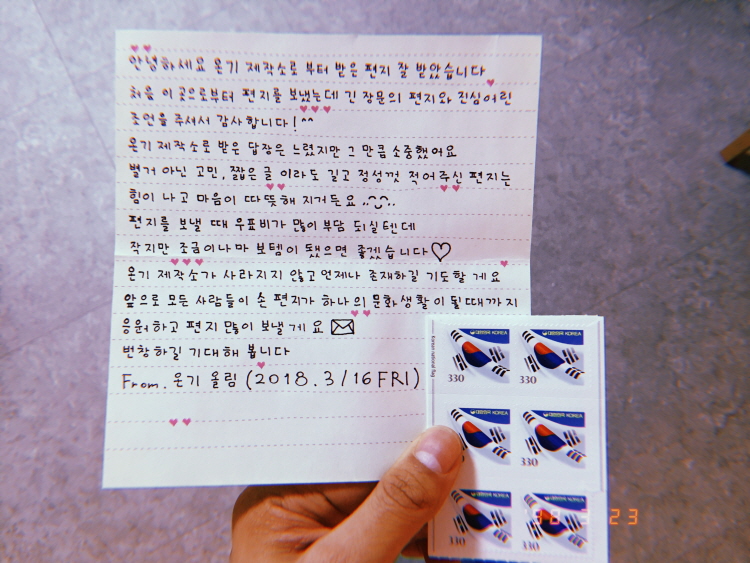 안녕하세요 온기 제작소로 부터 받은 편지 잘 받았습니다
처음 이 곳으로부터 편지를 보냈는데 긴 장문의 편지와 진심어린
조언을 주셔서 감사합니다!^^
온기 제작소로 받은 답장은 느렸지만 그 만큼 소중했어요
별거 아닌 고민, 짧은 글 이라도 길고 정성껏 적어주신 편지는
힘이 나고 마음이 따뜻해 지거든요
편지를 보낼 때 우표비가 많이 부담 되실텐데
작지만 조금이나마 보템이 됐으면 좋겠습니다♡
온기 제작소가 사라지지 않고 언제나 존재하길 기도할 게요
앞으로 모든 사람들이 손 편지가 하나의 문화생활이 될 때까지
응원하고 편지 많이 보낼게요
번창하길 기대해 봅니다
From. 온기 올림 (2018. 3/16 FRI)
Korean national flag
대한민국 KOREA
330
대한민국 KOREA
330
대한민국 KOREA
330
대한민국 KOREA
330
대한민국 KOREA
330
대한민국 KOREA
23